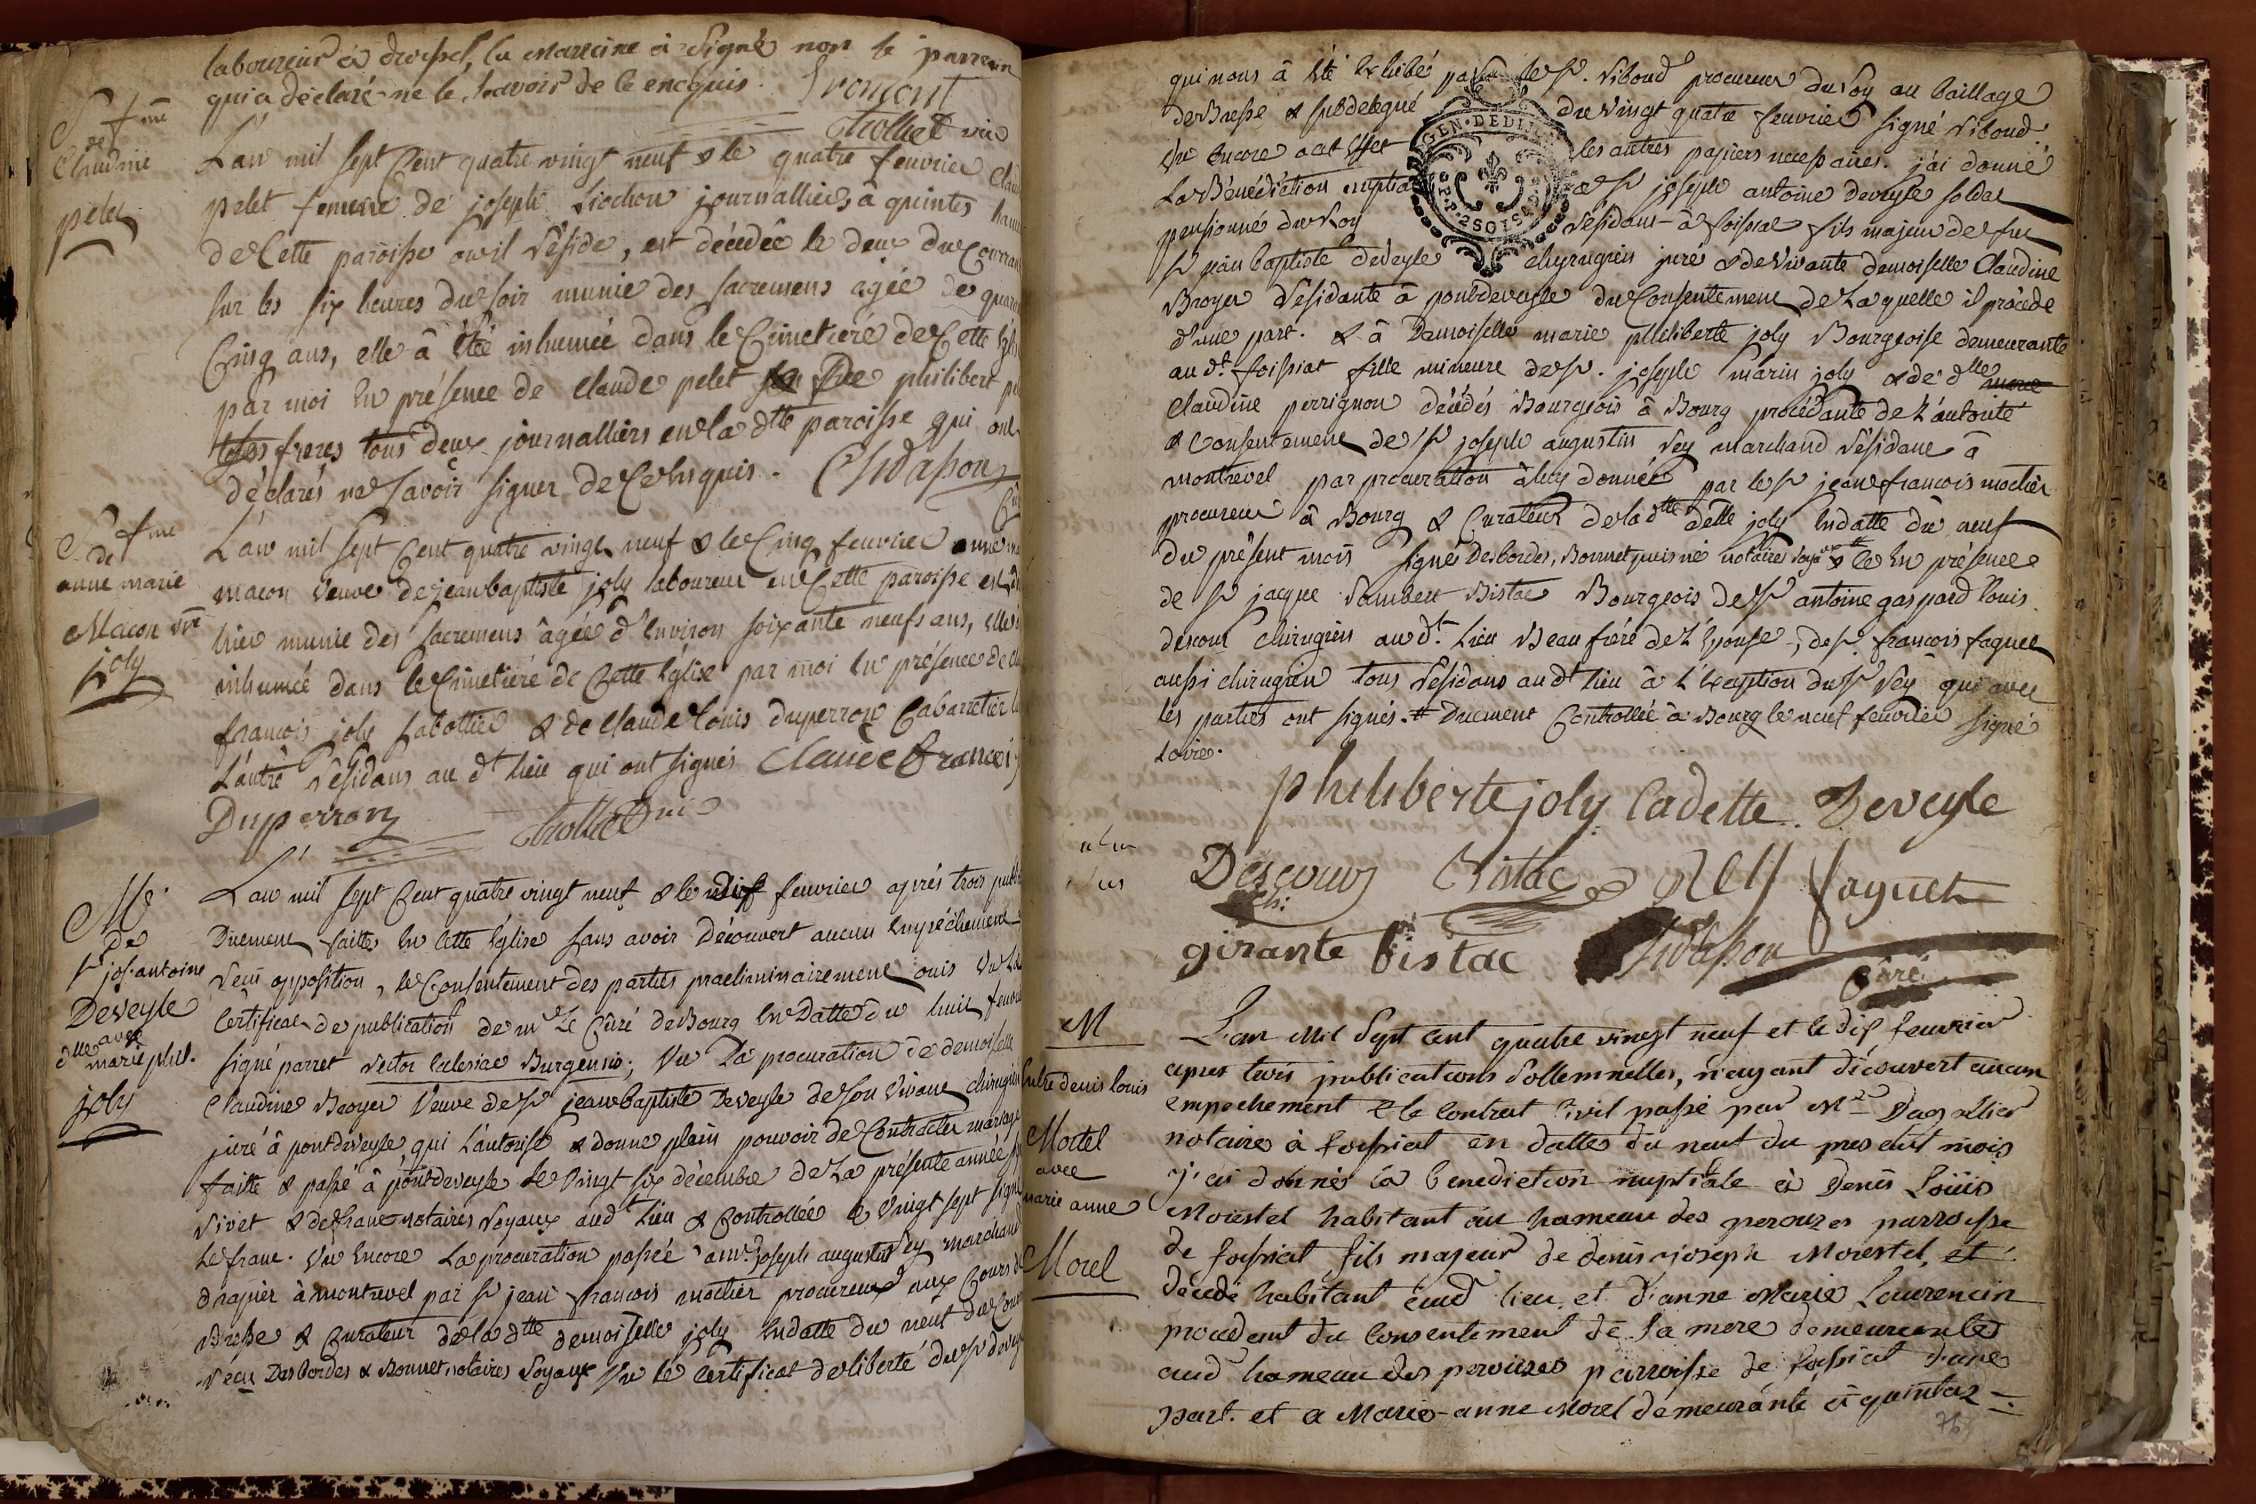 laboureur à droissel, la Marreine a signé non le parrein
qui a déclaré ne le savoir de ce enquis. fromont
tholliet vic
S. fme
Claudine
pelet
L'an mil sept Cent quatre vingt neuf & le quatre feuvrier
pelet femme de joseph Liochon journallier à quintes
de Cette paroisse ou il réside, est décédée le deux du Couran
sur les six heures du soir munie des sacremens agée de
Cinq ans, elle à été inhumée dans le Cimetiére de Cette
par moi en présence de claude pelet philibert
frères tous deux journalliers en la dtte paroisse qui ont
déclarés ne sçavoir signer de Ce enquis. Chidasson
S. fme
de
anne marie
Macon vve
joly
L'an mil sept Cent quatre vingt neuf & le Cinq feuvrier anne
macon veuve de jean baptiste joly laboureur en Cette paroisse est
hier munie des sacremens âgée d'environ soixante neufs ans, elle
inhumée dans le Cimetiére de Cette Eglise par moi en présence de
francois joly sabottier & de claude Louis duperron Cabarretier
L'autre résidans au dt lieu qui ont signés Claude francoi
Duperron tholliet vic
M.
de
sr jos. antoine
Deveyle
avec
dlle marie phil.
joly
L'an mil sept Cent quatre vingt neuf & le dix feuvrier après trois
Duement faittes en Cette Eglise sans avoir découvert aucun Empéchement
veni opposition, le Consentement des parties praeliminairement ouis Vu
Certificat de publication de mr Le Curé de Bourg en Datte du huit
signé parret rector Ecclesiae Burgensis; Vu la procuration de demoiselle
Claudine Broyer veuve de sr jean baptiste Deveyle de son vivant chirugien
juré à pontdeveyle, qui L'autorise & donne plein pouvoir de Contracter mariage
faitte & passé à pontdeveyle le vingt six décembre de La présente année
vivet & defranc notaires Royaux aud t Lieu & Controllée le vingt sept signé
Lefranc. Vu Encore La procuration passée a mr joseph augustin Rey marchand
drapier à montrevel par sr jean francois moctier procureur aux Cours de
Bresse & Curateur de la dtte demoiselle joly En datte du neuf du
reçu Desbordes & Bonnet notaires Royaux Vu le Certificat de liberté du sr
qui nous à été Exhibé par le sr. Riboud procureur du Roy au baillage
de Bresse & subdelegué du vingt quatre feuvrier signé Riboud
Vu Encore les autres papiers necessaires. j'ai donné
La Bénédiction nuptiale sr joseph antoine deveyle soldat
pensionné du Roy résidant à foissiat fils majeur de feu
sr jean baptiste deveyle chyrugien juré & de Vivante demoiselle Claudine
Broyer résidante à pontdeveyle du Consentement de La quelle il procede
d'une part. & à Demoiselle marie philiberte joly Bourgeoise demeurante
au dt. foissiat fille mineure de sr. joseph marin joly & de dlle
Claudine perrignon décédés Bourgeois à Bourg procédante de L'autorité
& Consentement de sr joseph augustin Rey marchand résidant à
montrevel par procuration à luy donnée par le sr jean francois moctier
procureur à Bourg & Curateur de la dtte delle joly En datte du neuf
du présent mois signé Desbordes, Bonnet puisné notaires En présence
de sr jacque Lambert Bistac Bourgeois de sr antoine gaspard louis
descour chirugien au dt. Lieu Beau frére de L'Epouse, de sr. francois faguet
aussi chirugien tous résidans au dt lieu à L'Exception du sr Rey qui avec
les parties ont signés. Duement Controllée à Bourg le neuf feuvrier signé
Lavie.
GEN. DE DIJON
philiberte joly Cadette Deveyle
Descour Bistac Rey faguet
ch:
girante bistac Chidasson
Curé
M
Entre denis louis
Mortel
avec
marie anne
Morel
L'an Mil Sept Cent quatre vingt neuf et le dix feuvrier
apres trois publications sollemnelles, n'ayant découvert aucun
empechement & le Contrat Civil passé par Me Dagallier
notaire à foissiat en datte du neuf du present mois
j'ai donné la benediction nuptiale à Denis Louis
Morestel habitant au hameau des perouzes parroisse
de foissiat fils majeur de denis joseph Morestel, et
decedé habitant aud lieu et d'anne Marie Laurencin
procedent du Consentement de sa mere demeurantes
aud hameau des perouzes parroisse de foissiat d'une
part. et a Marie-anne Morel demeurante à quintas